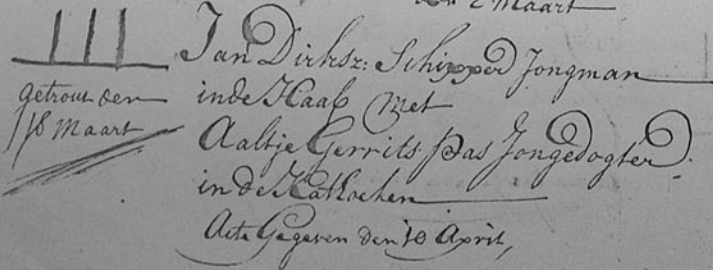 2 Maart
III
getrout den
18 Maart
Jan Dirksz: Schipper Jongman
inde Haaf Met
Aaltje Gerrits Pas Jongedogter.
in de Kathoeken
Acte Gegeven den 10 April,